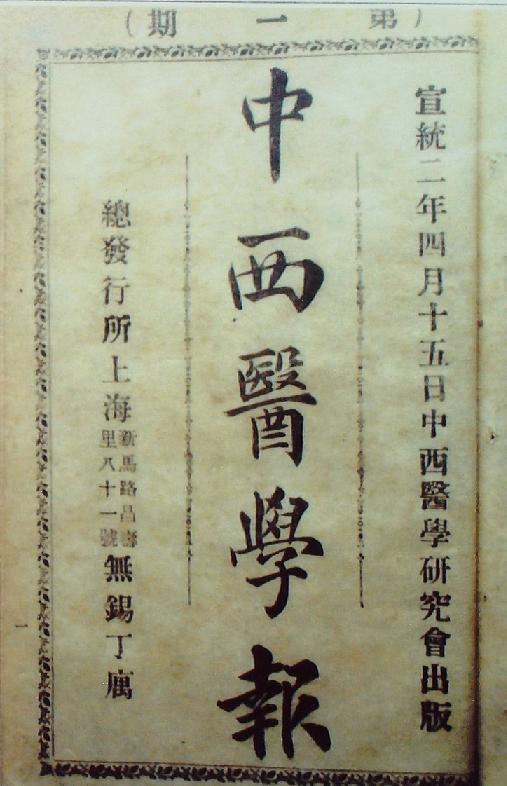 （第一期）
宣統二年四月十五日中西醫學研究會出版
中西醫學報
總發行所上海新馬路昌壽里八十一號無錫丁庽
一